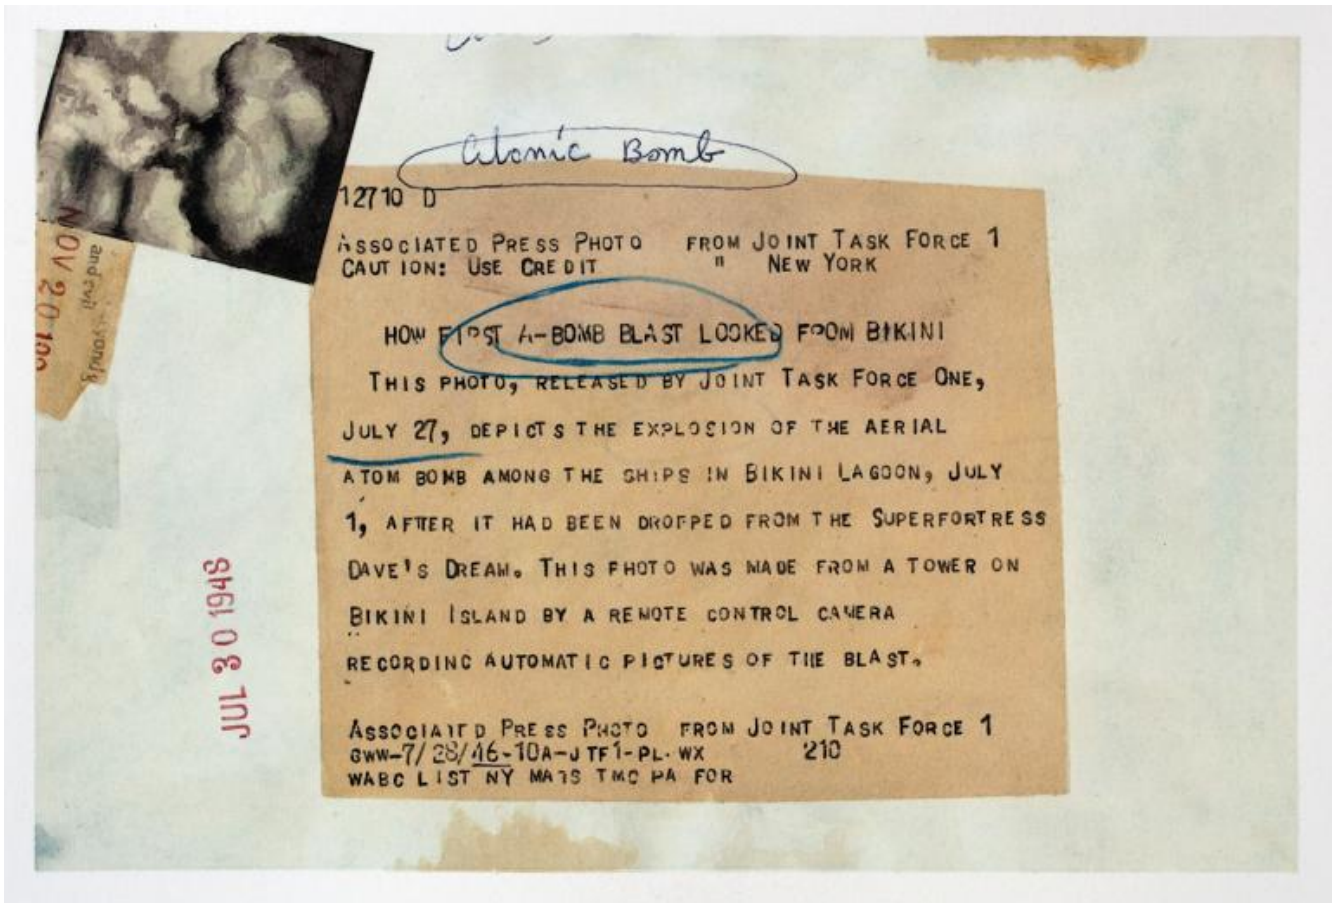 Atomic Bomb
12710 D
ASSOCIATED PRESS PHOTO FROM JOINT TASK FORCE 1
CAUTION: USE CREDIT " NEW YORK
HOW FIRST A-BOMB BLAST LOOKED FROM BIKINI
THIS PHOTO, RELEASED BY JOINT TASK FORCE ONE,
JULY 27, DEPICTS THE EXPLOSION OF THE AERIAL
ATOM BOMB AMONG THE SHIPS IN BIKINI LAGOON, JULY
1, AFTER IT HAD BEEN DROPPED FROM THE SUPERFORTRESS
DAVE'S DREAM. THIS PHOTO WAS MADE FROM A TOWER ON
BIKINI ISLAND BY A REMOTE CONTROL CAMERA
RECORDING AUTOMATIC PICTURES OF THE BLAST.
ASSOCIATED PRESS PHOTO FROM JOINT TASK FORCE 1
GWW-7/28/46-10A-JTF1-PL.WX 210
WABC LIST NY MATS TMC PA FOR
NOV 20
and evil
JUL 30 1946